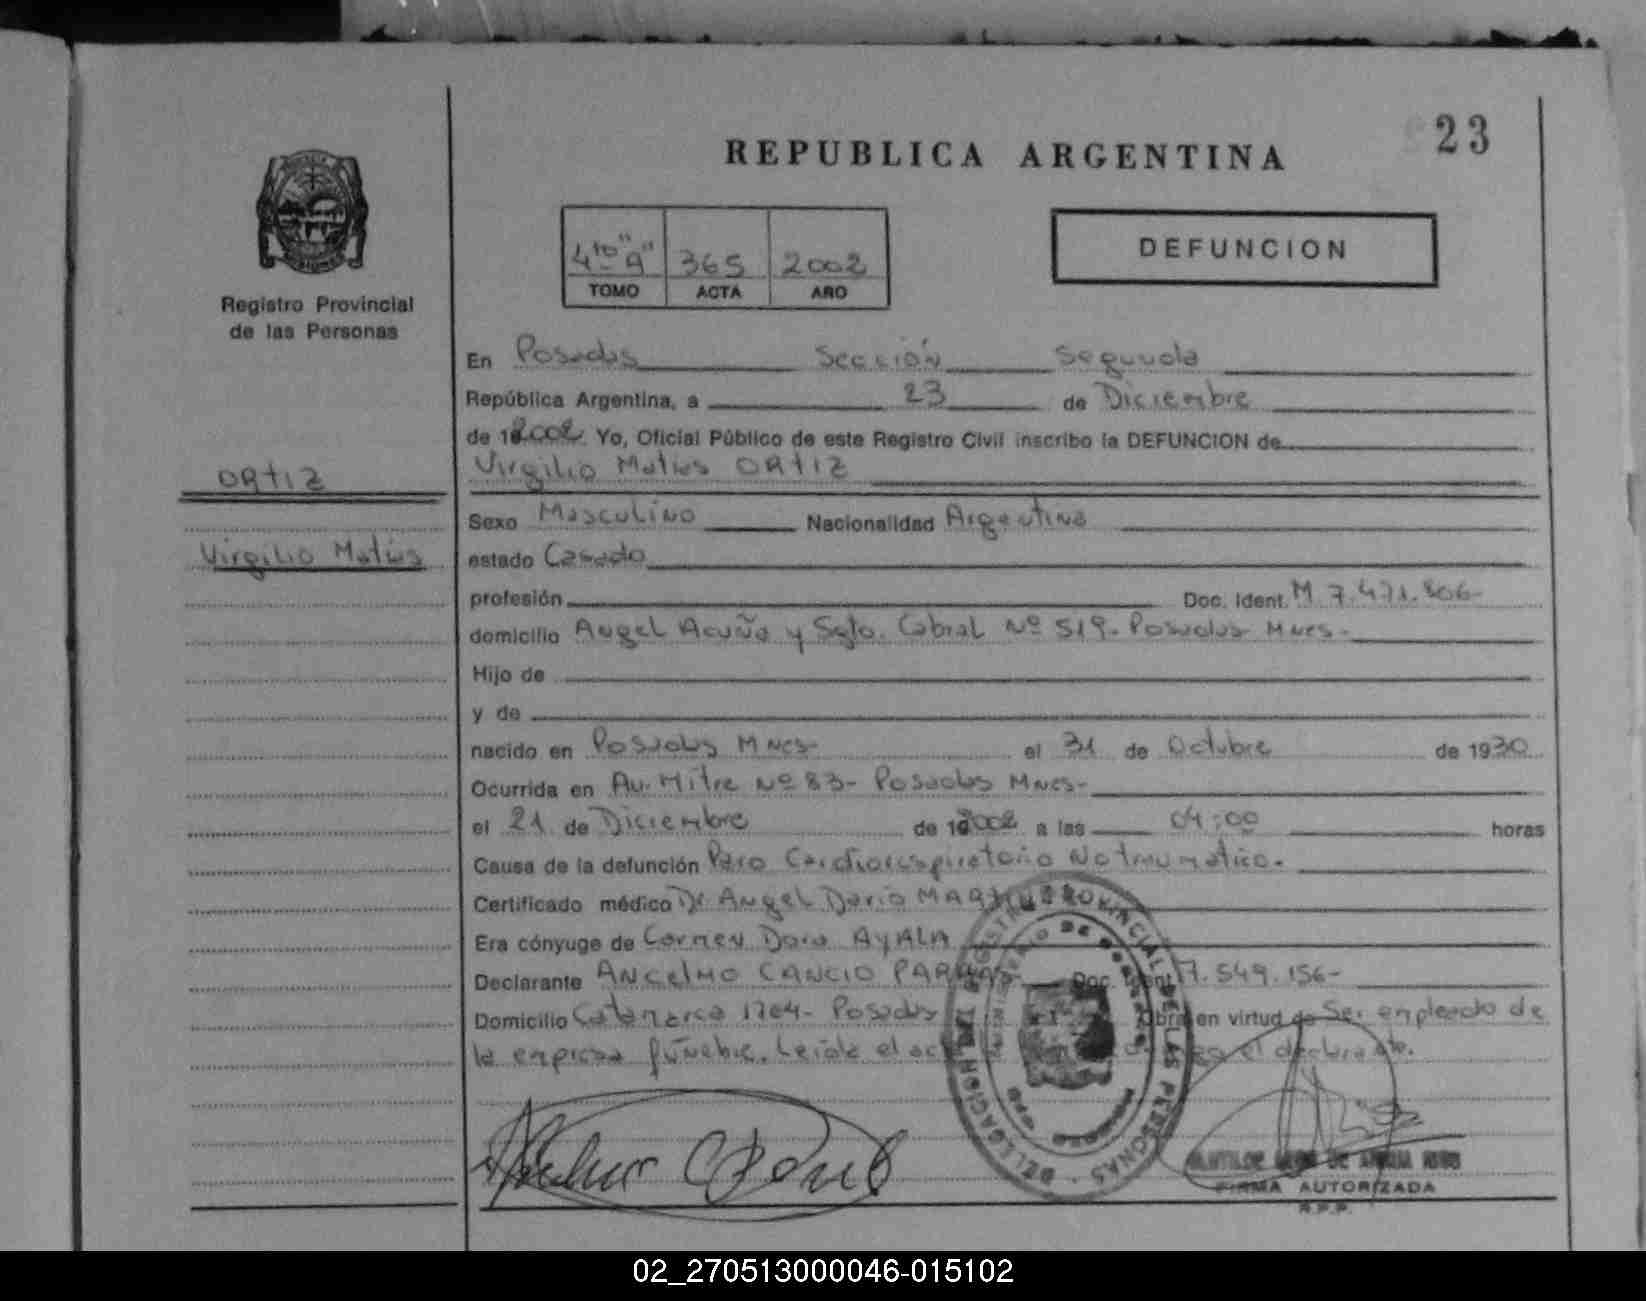 23
REPUBLICA ARGENTINA
4to "A" 365 2002
TOMO ACTA AÑO
DEFUNCION
Registro Provincial
de las Personas
En Posadas Sección Segunda
República Argentina, a 23 de Diciembre
de 2002. Yo, Oficial Público de este Registro Civil inscribo la DEFUNCION de
ORTIZ
Virgilio Matías ORTIZ
Sexo Masculino Nacionalidad Argentina
Virgilio Matías
estado Casado
profesión Doc. Ident. M 7.471.806-
domicilio Angel Acuña y Sgto. Cabral Nº 519- Posadas Mnes-
Hijo de
y de
nacido en Posadas Mnes- el 31 de Octubre de 1930
Ocurrida en Av. Mitre Nº 83- Posadas Mnes-
el 21 de Diciembre de 2002 a las 04:00 horas
Causa de la defunción Paro Cardiorespiratorio No traumático-
Certificado médico Dr Angel Dario
Era cónyuge de Carmen Dora AYALA
Declarante ANCELMO CANCIO Doc. Ident 7.549.156-
Domicilio Catamarca 1704- Posadas Obra en virtud de Ser empleado de
la empresa fúnebre. Leída el el declarante.
REGISTRO PROVINCIAL DE LAS PERSONAS - DELEGACION
FIRMA AUTORIZADA
R.P.P.
02_270513000046-015102